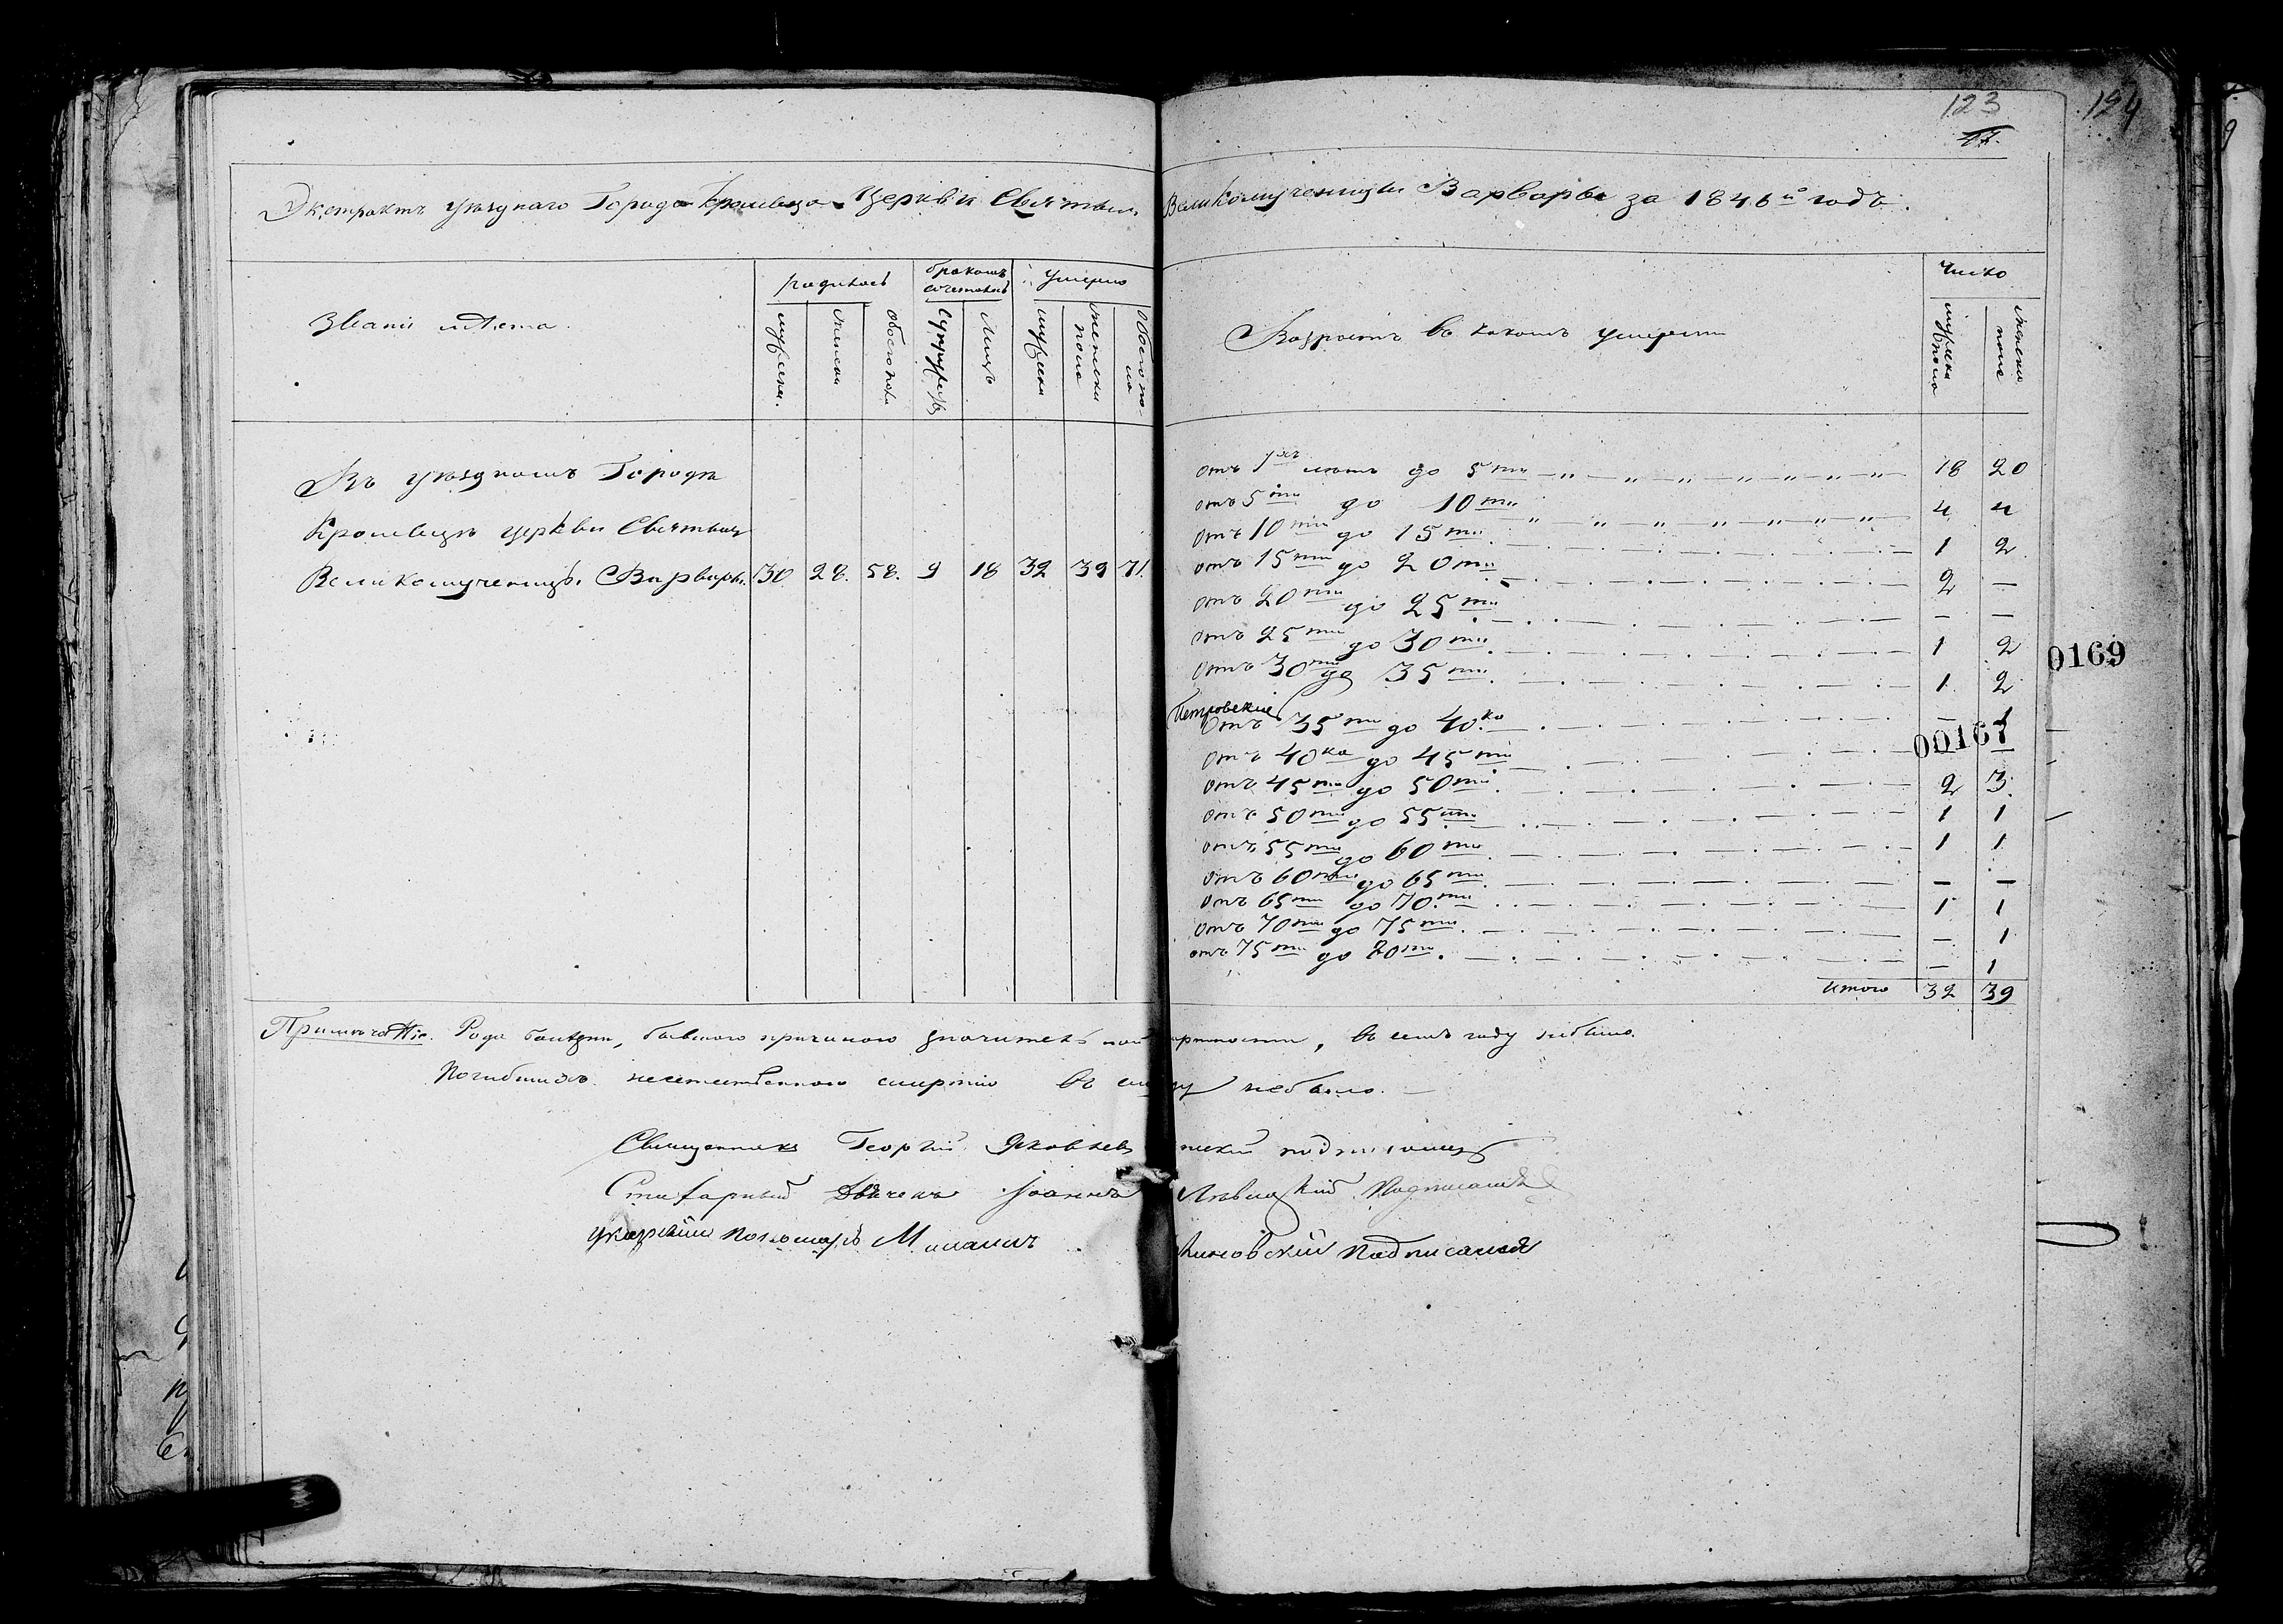 123
17.
124
9
Экстрактъ уѣзднаго Города Кролевца Церкви Святыя Великомученицы Варвары за 1846й годъ.
Званіе мѣста.
родилось
бракомъ сочеталось
умерло
мужеска
женска
обоего пола
Супружествъ
Лицъ
мужеска
женска пола
Обоего пола
Возрастъ въ какомъ умерли
Число
мужеска пола
женска пола
Въ уѣздномъ Городѣ
Кролевцѣ церкви Святыя
Великомученицы Варвары. 30 28. 58. 9 18 32 39 71.
отъ 1хъ лѣтъ до 5ти — „ — „ — „ — „ — „ — „ — 18 20
отъ 5ти до 10ти „ „ „ „ — „ — „ — 4 4
отъ 10ти до 15ти 1 2
отъ 15ти до 20ти 2 —
отъ 20ти до 25ти — —
отъ 25ти до 30ти 1 2
отъ 30ти до 35ти 1 2
Петровскій
Отъ 35ти до 40ка — 1
отъ 40ка до 45ти — —
отъ 45ти до 50ти 2 3
отъ 50ти до 55ти 1 1
отъ 55ти до 60ти 1 1
отъ 60ти до 65ти — —
отъ 65ти до 70ти 1 1
отъ 70ти до 75ти — 1
отъ 75ти до 80ти — 1
Итого 32 39
0169
00167
Примѣчаніе. Рода болѣзни, бывшаго причиною значительной смертности, въ семъ году небыло.
Погибшихъ неестественною смертію въ году небыло. —
Священникъ Георгій Яковлев подписался
Стихарный Дьячекъ Іоаннъ Левицкій Подписался
указный пономарь М подписался